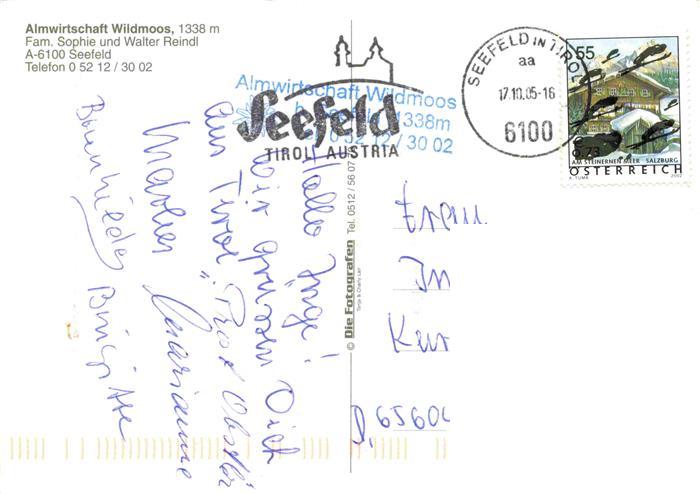 Almwirtschaft Wildmoos, 1338 m
Fam. Sophie und Walter Reindl
A-6100 Seefeld
Telefon 0 52 12 / 30 02
Almwirtschaft Wildmoos
1338m
52 12 / 30 02
Seefeld
TIROL AUSTRIA
SEEFELD IN TIROL
aa
17.10.05-16
6100
55
0,73
AM STEINERNEN MEER SALZBURG
ÖSTERREICH
A. TUMA 2002
© Die Fotografen Tel. 0512 / 56 07
Hallo Inge!
wir grüssen Dich
aus Tirol "Prost Obstler"
Marianne
Brunhilde
Birgitte
D, 65606